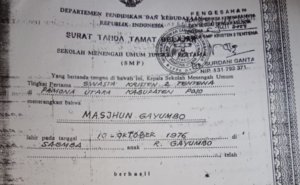 DEPARTEMEN PENDIDIKAN DAN KEBUDAYAAN
REPUBLIK INDONESIA
PENGESAHAN
SURAT TANDA TAMAT BELAJAR
SEKOLAH MENENGAH UMUM TINGKAT PERTAMA
(SMP)
SURDANI GANTA
NIP. 531 792 371
Yang bertanda tangan di bawah ini, Kepala Sekolah Menengah Umum
Tingkat Pertama SWASTA KRISTEN 2 TENTENA
PAMONA UTARA KABUPATEN POSO
menerangkan bahwa
MASJHUN GAYUMBO
lahir pada tanggal 10 OKTOBER 1976
anak R. GAYUMBO
berhasil